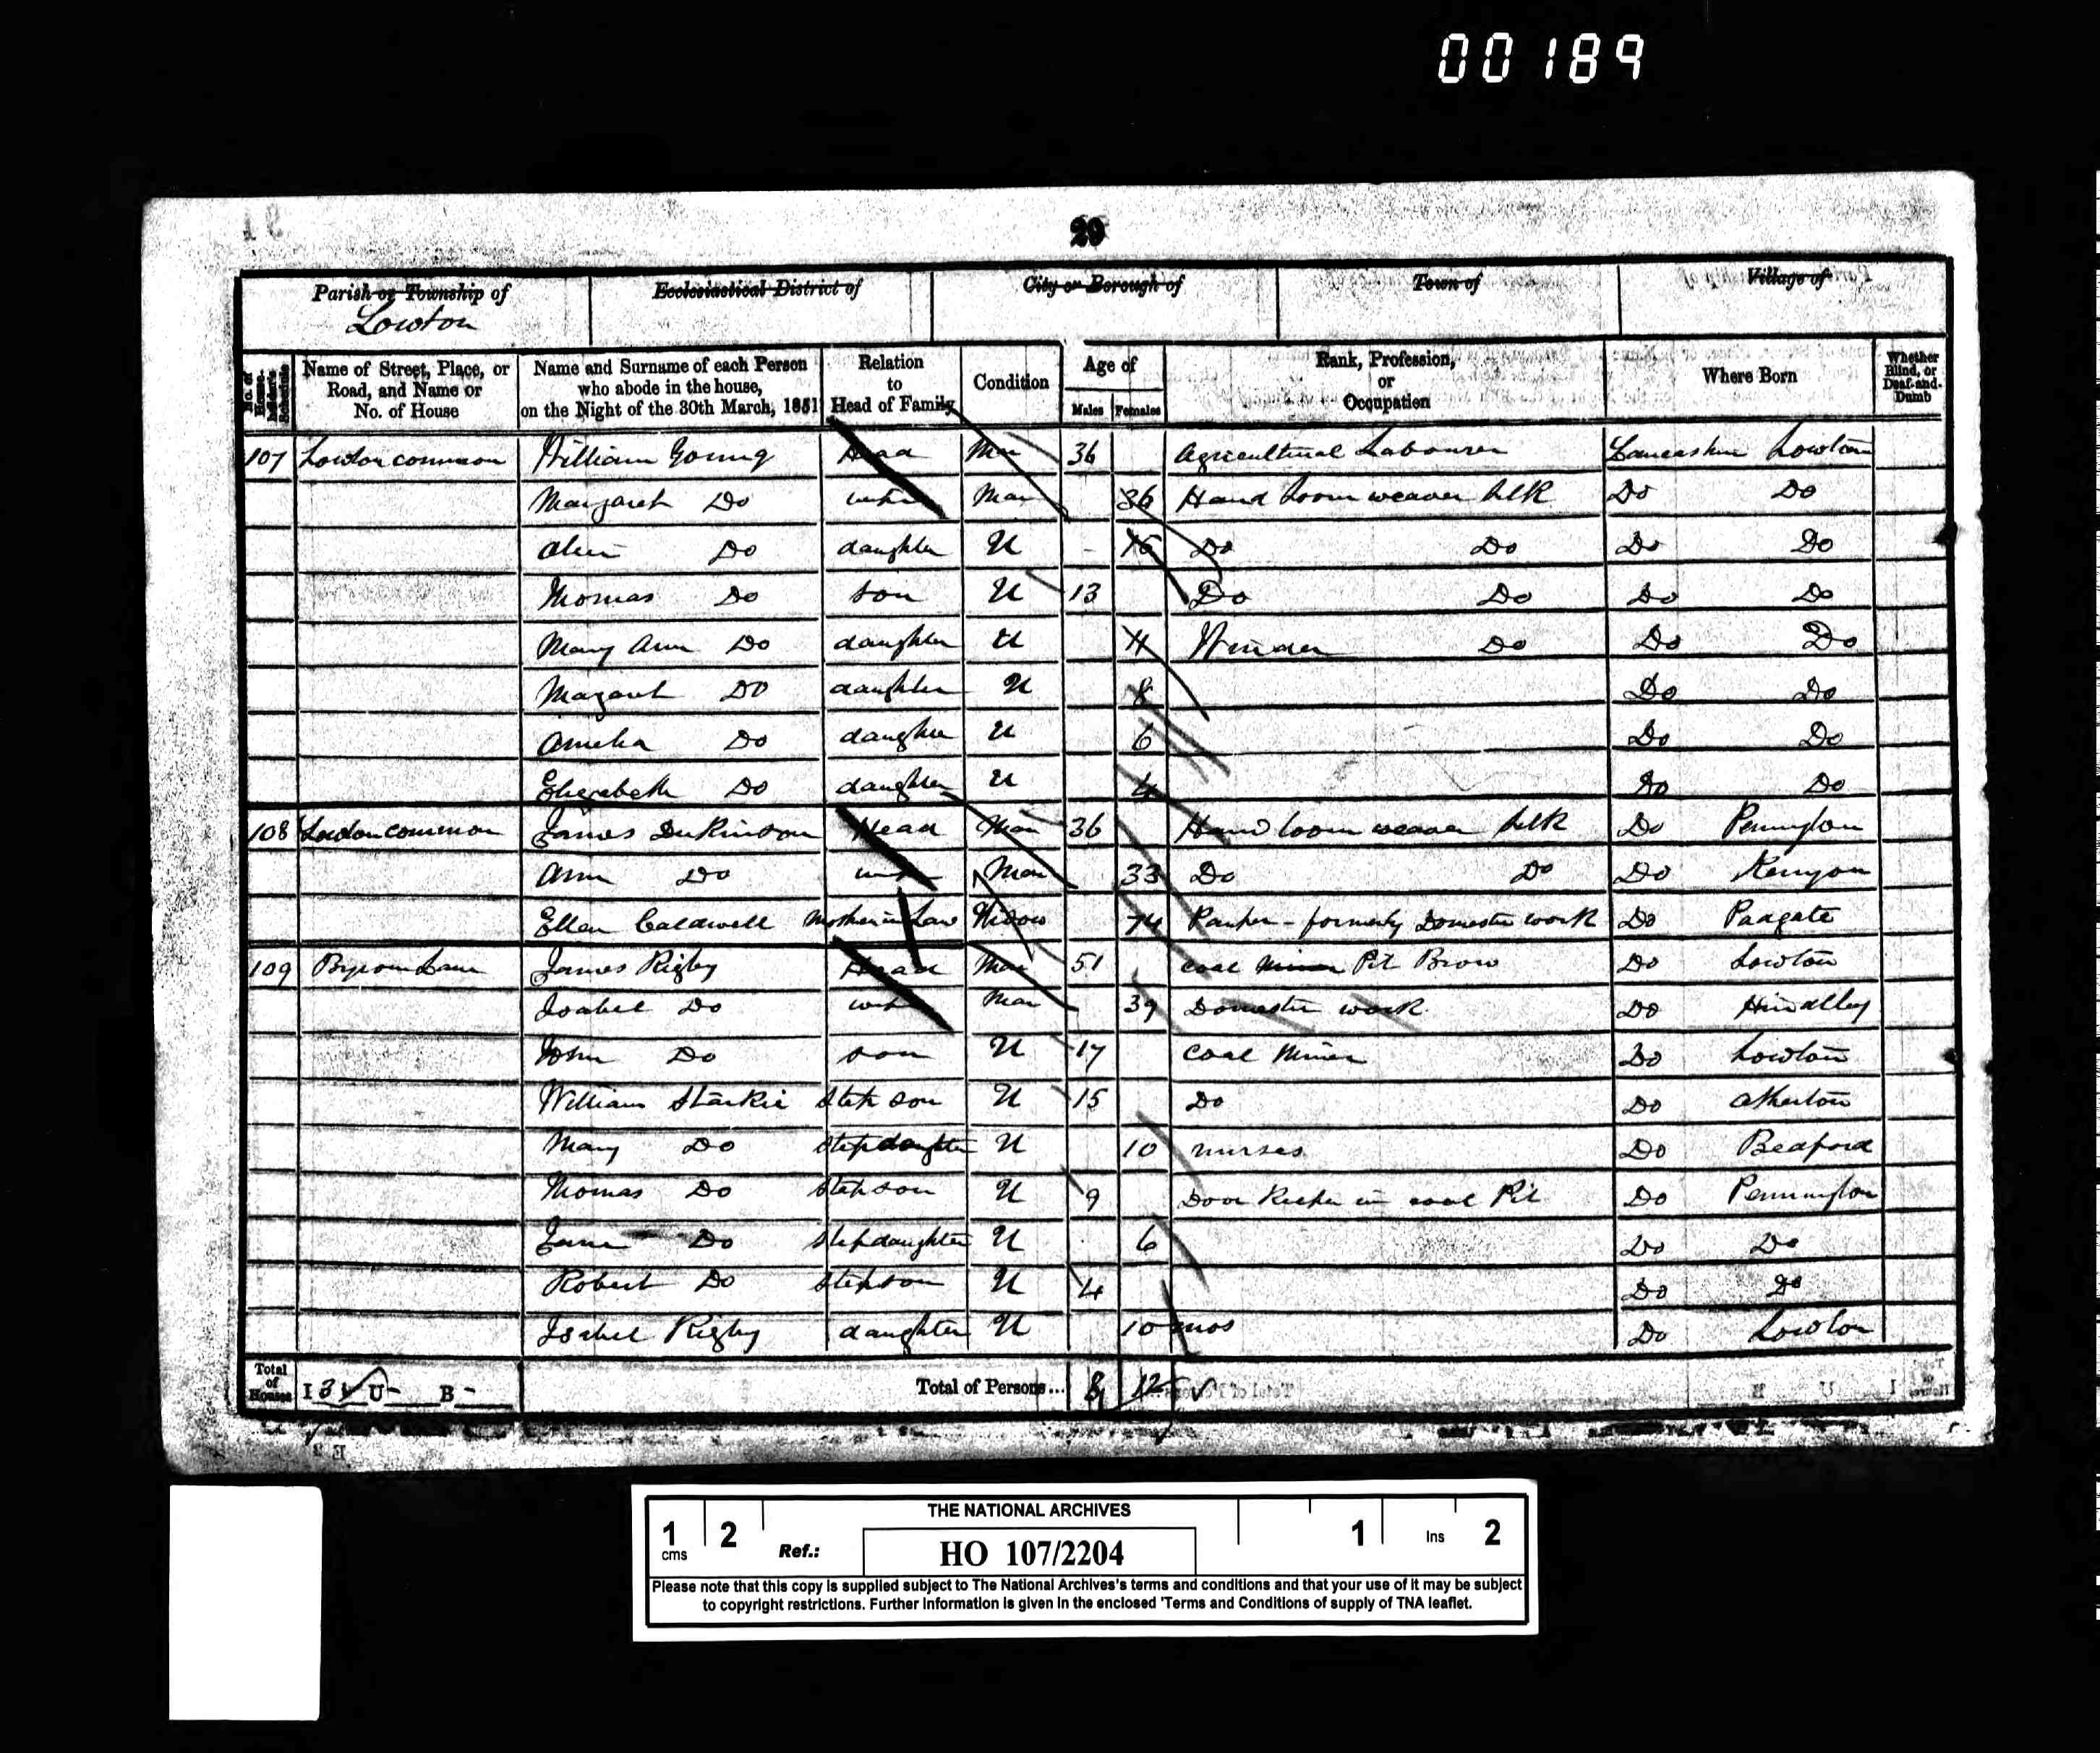 00189
29
Parish or Township of
Lowton
Ecclesiastical District of
City or Borough of
Town of
Village of
No. of House-holder's Schedule
Name of Street, Place, or Road, and Name or No. of House
Name and Surname of each Person who abode in the house, on the Night of the 30th March, 1851
Relation to Head of Family
Condition
Age of
Males Females
Rank, Profession, or Occupation
Where Born
Whether Blind, or Deaf-and-Dumb
107 Lowton common William Young Head Mar 36 Agricultural Labourer Lancashire Lowton
Margaret Do wife Mar 36 Hand Loom weaver silk Do Do
Do daughter U 16 Do Do Do Do
Thomas Do son U 13 Do Do Do Do
Mary Ann Do daughter U 11 Winder Do Do Do
Magaret Do daughter U 8 Do Do
Amelia Do daughter U 6 Do Do
Elizabeth Do daughter U 4 Do Do
108 Lowton common James Dukinson Head Mar 36 Hand loom weaver silk Do Pennyton
Ann Do wife Mar 33 Do Do Do Kenyon
Ellen Caldwell Mother in Law Widow 74 Pauper - formerly Domestic work Do Padgate
109 Byrom Lane James Rigby Head Mar 51 coal Miner Pit Brow Do Lowton
Isabel Do wife Mar 39 Domestic work Do Hindalley
John Do son U 17 coal Miner Do Lowton
William Starkie Step son U 15 Do Do Atherton
Mary Do Stepdaughter U 10 nurses Do Bedford
Thomas Do Stepson U 9 Door Keeper in coal Pit Do Pennington
Jane Do Stepdaughter U 6 Do Do
Robert Do Stepson U 4 Do Do
Isabel Rigby daughter U 10 mos Do Lowton
Total of Houses I 3 U - B -
Total of Persons... 8 12
THE NATIONAL ARCHIVES
1 cms 2 Ref.: HO 107/2204 1 Ins 2
Please note that this copy is supplied subject to The National Archives's terms and conditions and that your use of it may be subject
to copyright restrictions. Further information is given in the enclosed 'Terms and Conditions of supply of TNA leaflet.